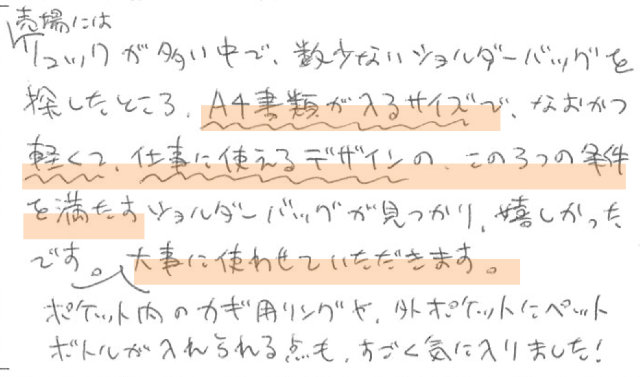 売場には
リュックが多い中で、数少ないショルダーバッグを
探したところ、A4書類が入るサイズで、なおかつ
軽くて、仕事に使えるデザインの、この3つの条件
を満たすショルダーバッグが見つかり、嬉しかった
です。大事に使わせていただきます。
ポケット内のカギ用リングや、外ポケットにペット
ボトルが入れられる点も、すごく気に入りました!